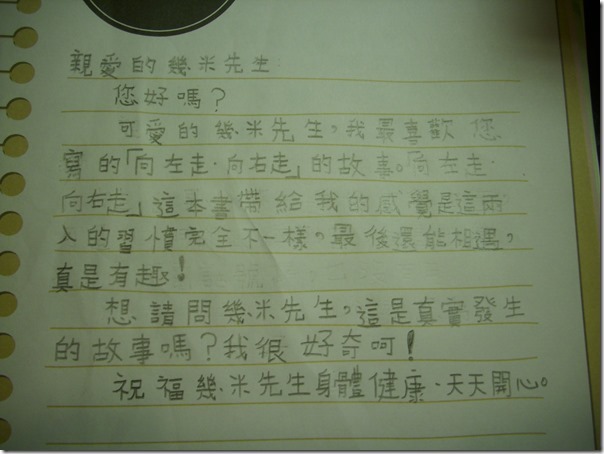 親愛的幾米先生:
您好嗎?
可愛的幾米先生,我最喜歡您
寫的「向左走·向右走」的故事。「向左走·
向右走」這本書帶給我的感覺是這兩
人的習慣完全不一樣,最後還能相遇,
真是有趣!
想請問幾米先生,這是真實發生
的故事嗎?我很好奇呵!
祝福幾米先生身體健康、天天開心。